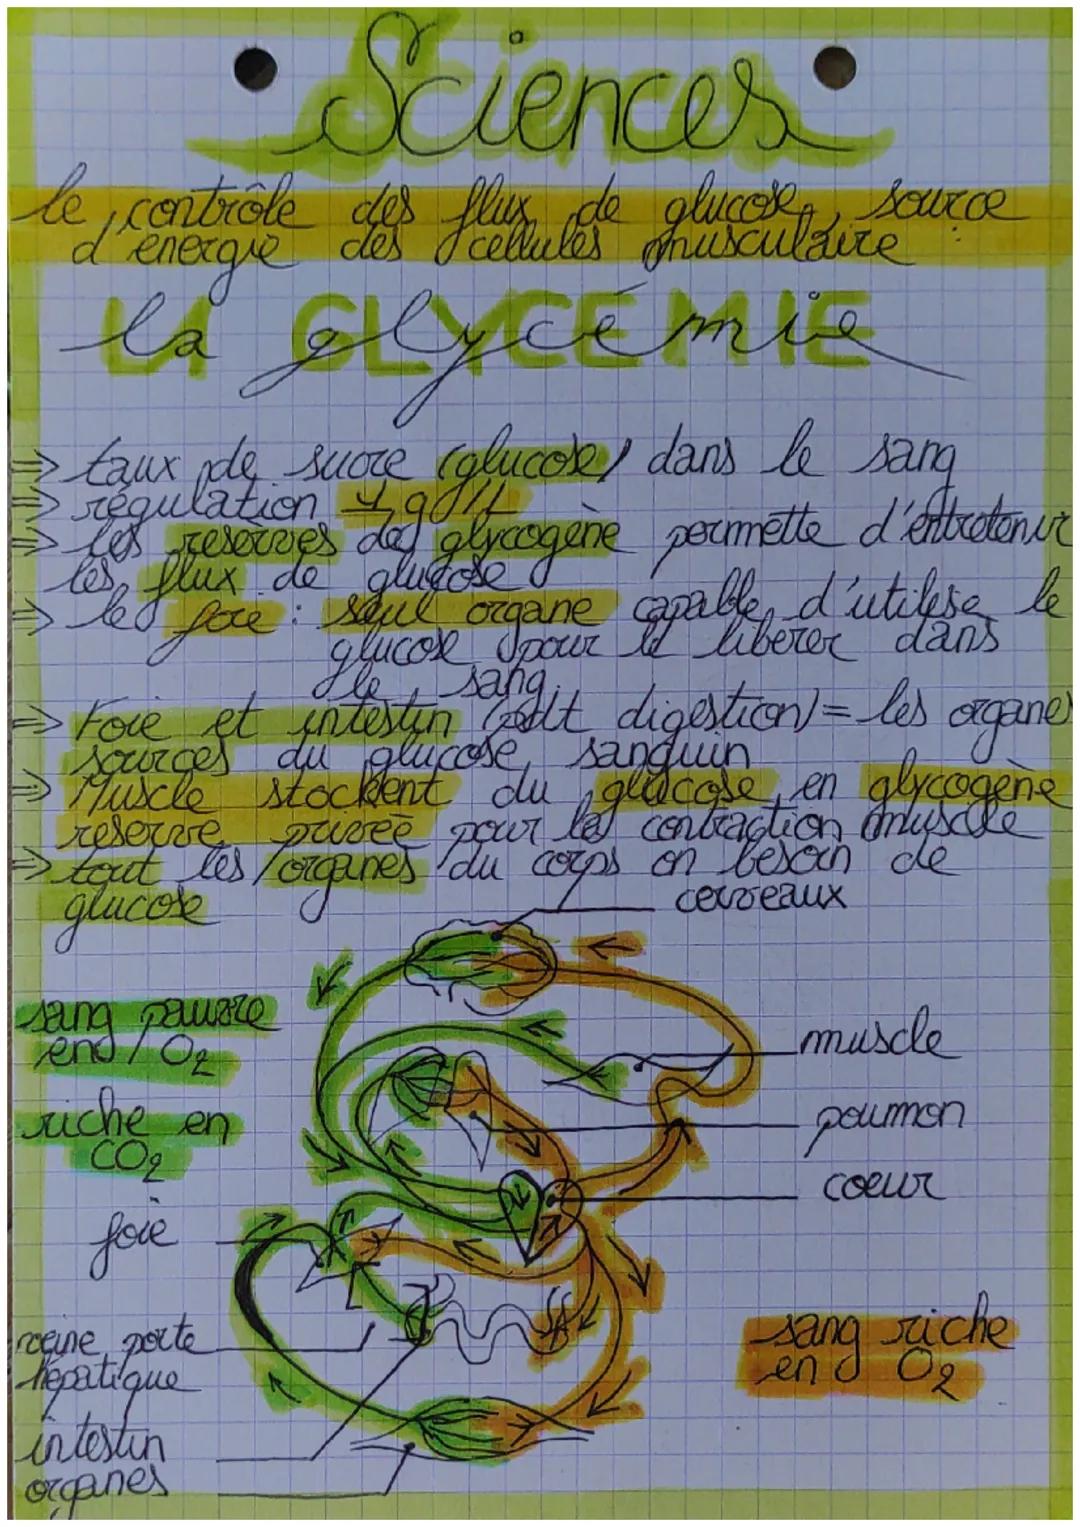 Sciences
le contrôle des flux de glucose, source
d'énergie des cellules musculaire
la glycémie
⇒ taux de sucre (glucose) dans le sang
⇒ régulation 1 g/L
⇒ les reserves de glycogène permette d'entretenir
les flux de glucose
⇒ le foie : seul organe capable d'utilise le
glucose pour le liberer dans
le sang
⇒ Foie et intestin digestion) = les organes
sources du glucose sanguin
⇒ Muscle stockent du glucose en glycogène
reserve privée pour la contraction muscle
⇒ tout les organes du corps on besoin de
glucose
cerveaux
sang pauvre
en O2
muscle
riche en
CO2
poumon
coeur
foie
veine porte
hépatique
sang riche
en O2
intestin
organes